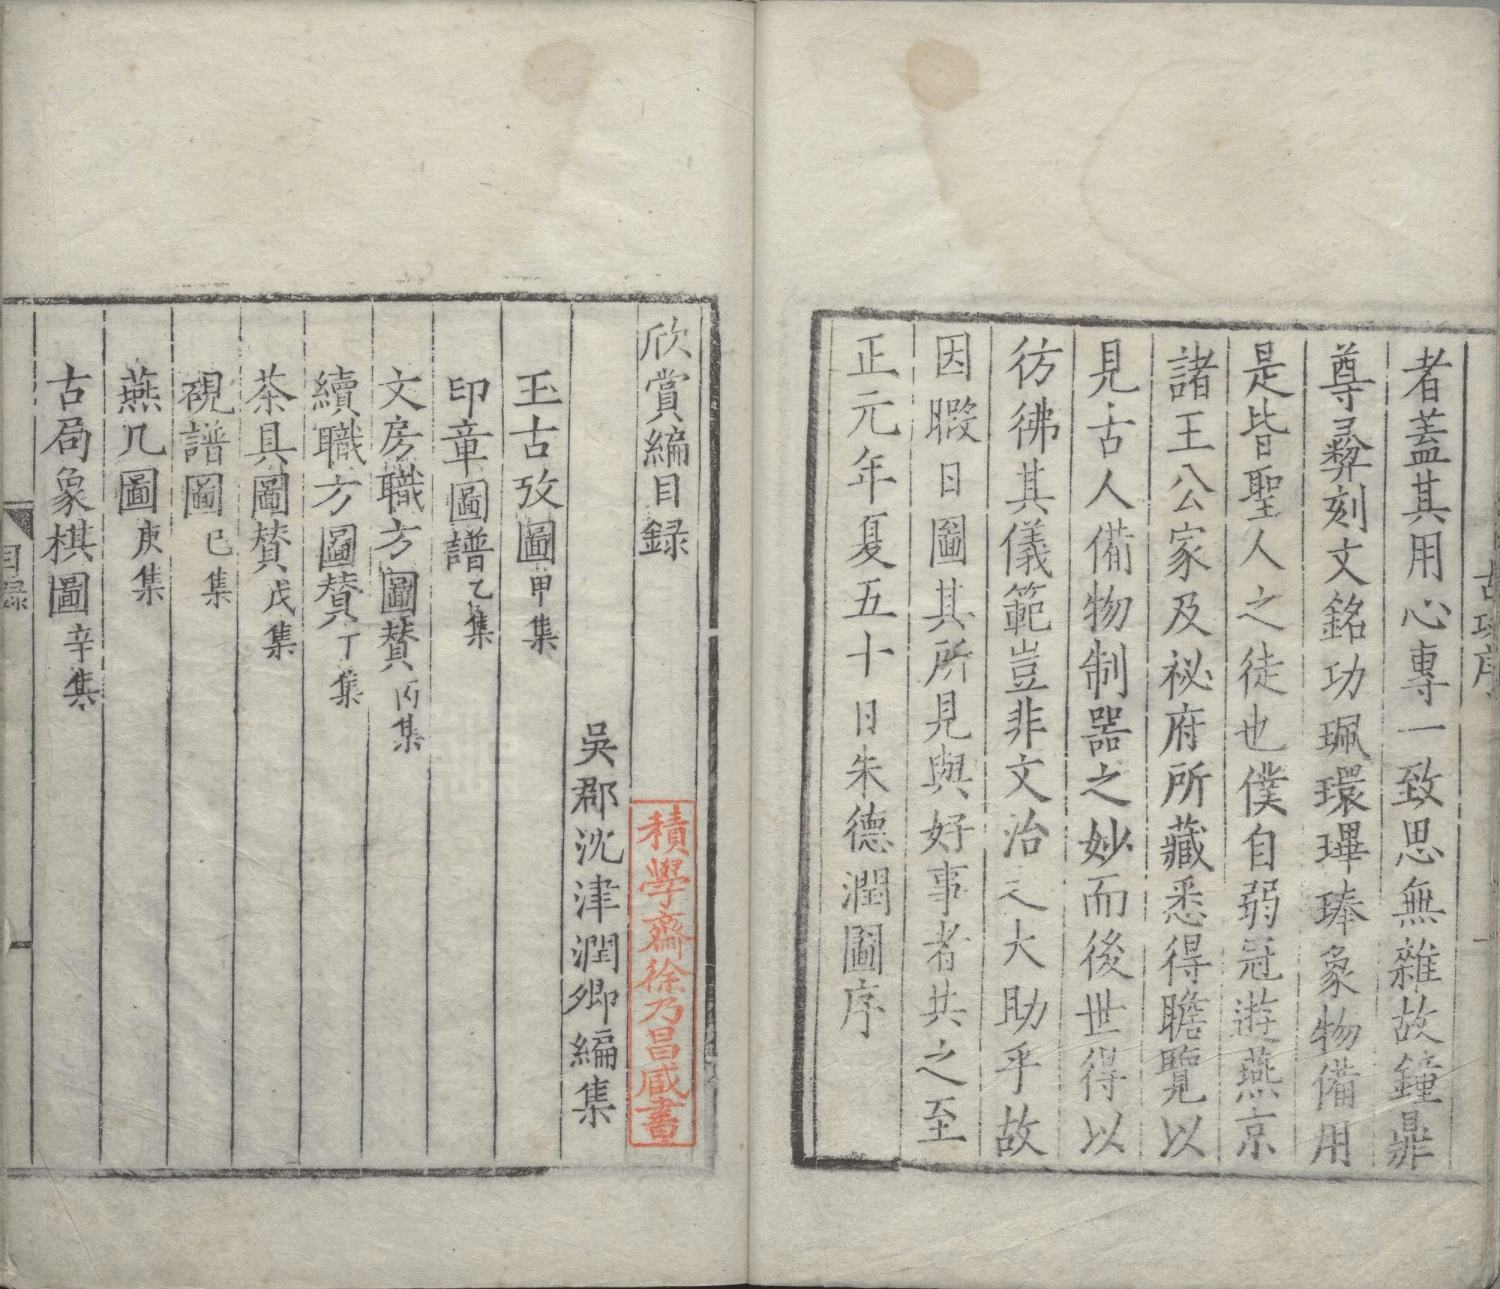 者蓋其用心專一致思無雜故鐘鼎
尊彛刻文銘功珮環琿琫象物備用
是皆聖人之徒也僕自弱冠遊燕京
諸王公家及祕府所藏悉得瞻覽以
見古人備物制器之妙而後世得以
彷彿其儀範豈非文治之大助乎故
因暇日圖其所見與好事者共之至
正元年夏五十日朱德潤圖序
欣賞編目録
積學齋徐乃昌臧書
吳郡沈津潤卿編集
玉古攷圖甲集
印章圖譜乙集
文房職方圖贊丙集
續職方圖贊丁集
茶具圖贊戊集
硯譜圖已集
燕几圖庚集
古局象棋圖辛集
目録